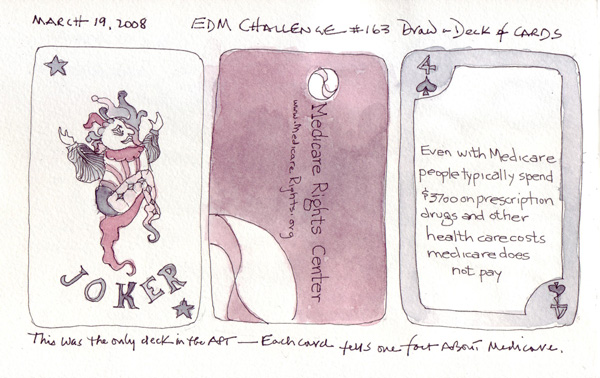 MARCH 19, 2008 EDM CHALLENGE #163 Draw a Deck of CARDS
JOKER
Medicare Rights Center
www.MedicareRights.org
4
Even with Medicare
people typically spend
$3700 on prescription
drugs and other
health care costs
medicare does
not pay
4
This was the only deck in the APT — Each card tells one fact About Medicare.